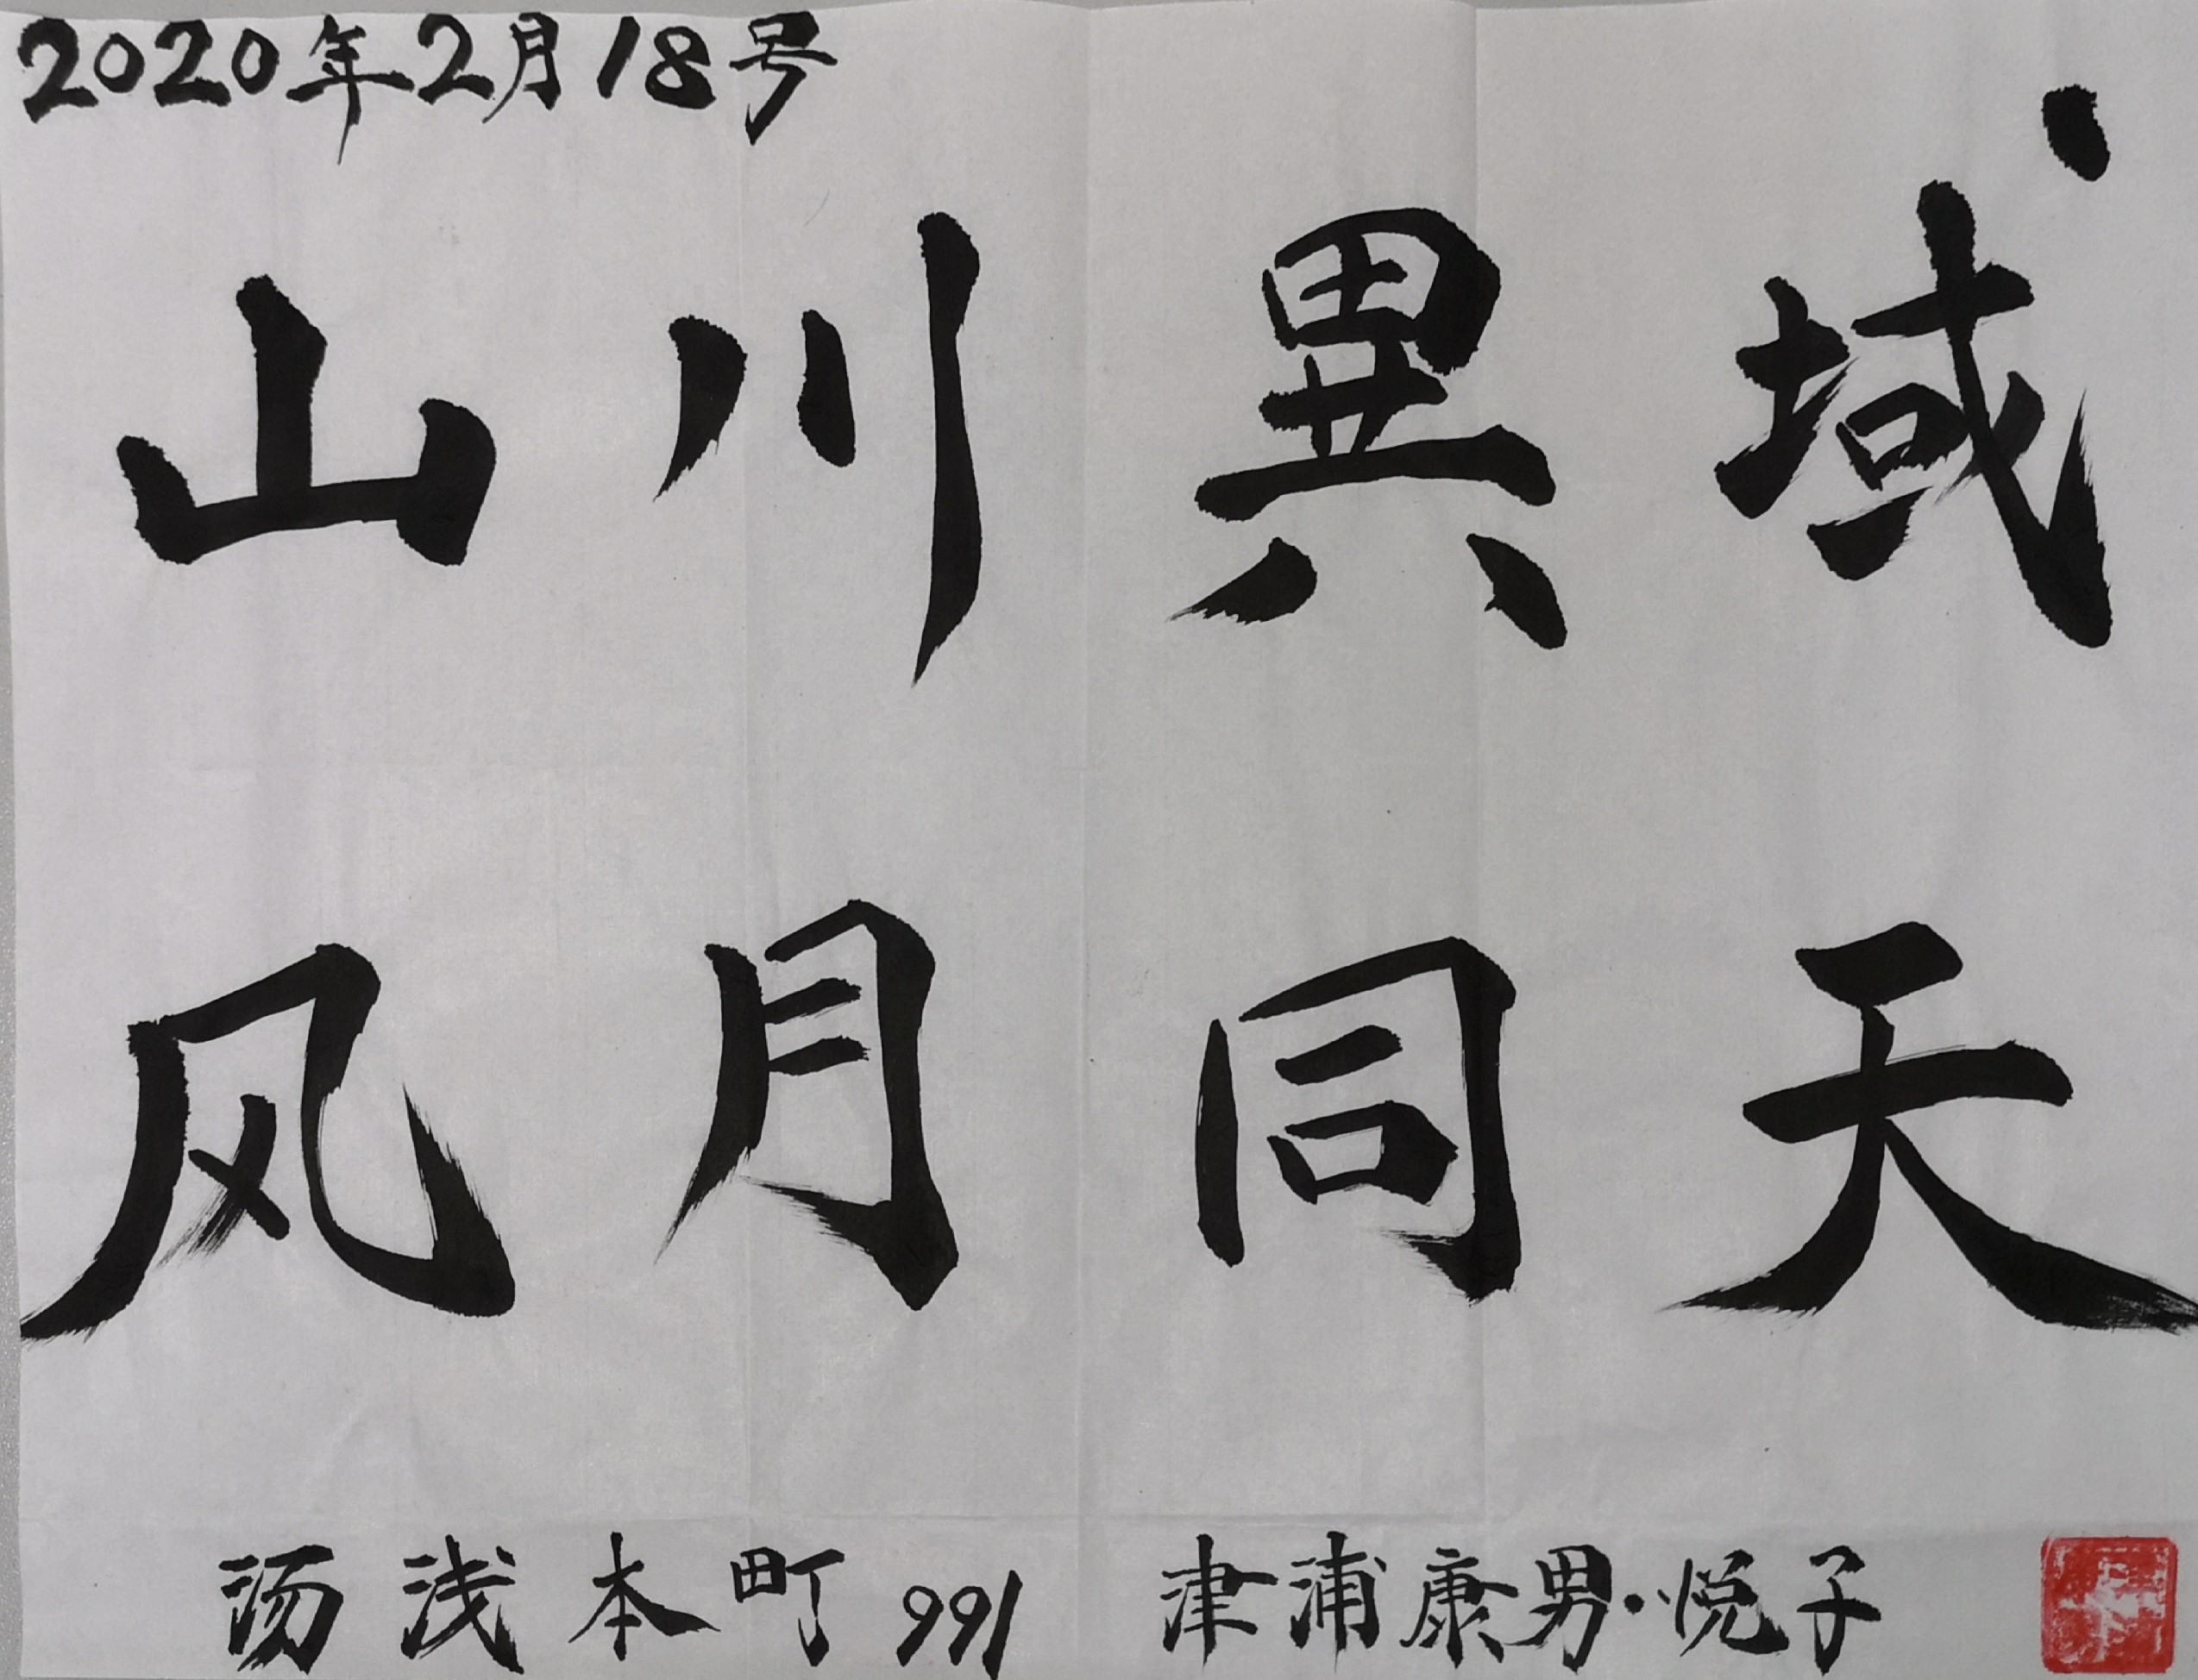 2020年2月18号
山川異域
风月同天
汤浅本町991 津浦康男·悦子